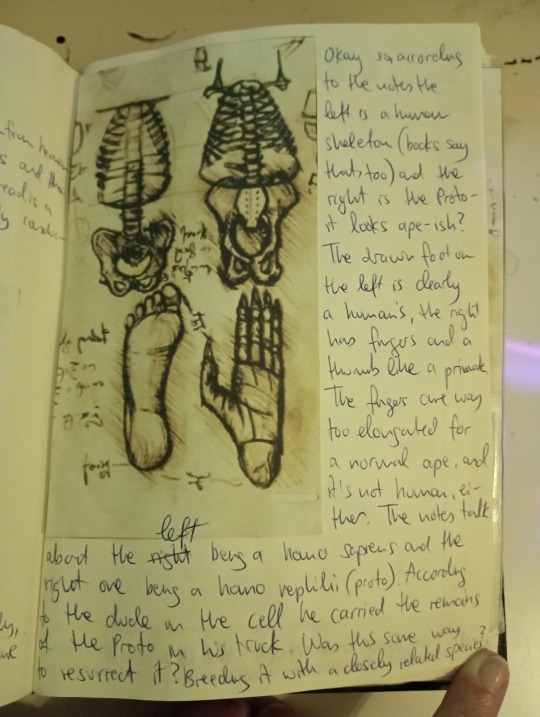 Okay so, according
to the notes the
left is a human
skeleton (books say
that, too) and the
right is the Proto-
it looks ape-ish?
The drawn foot on
the left is clearly
a human's, the right
has fingers and a
thumb like a primate
The fingers are way
too elongated for
a normal ape, and
it's not human, ei-
ther. The notes talk
left
about the right being a homo sapiens and the
right one being a homo reptilii (proto). According
to the dude in the cell he carried the remains
of the Proto in his truck. Was this some way
to resurrect it? Breeding it with a closely related species?
from
s and the
ead is a